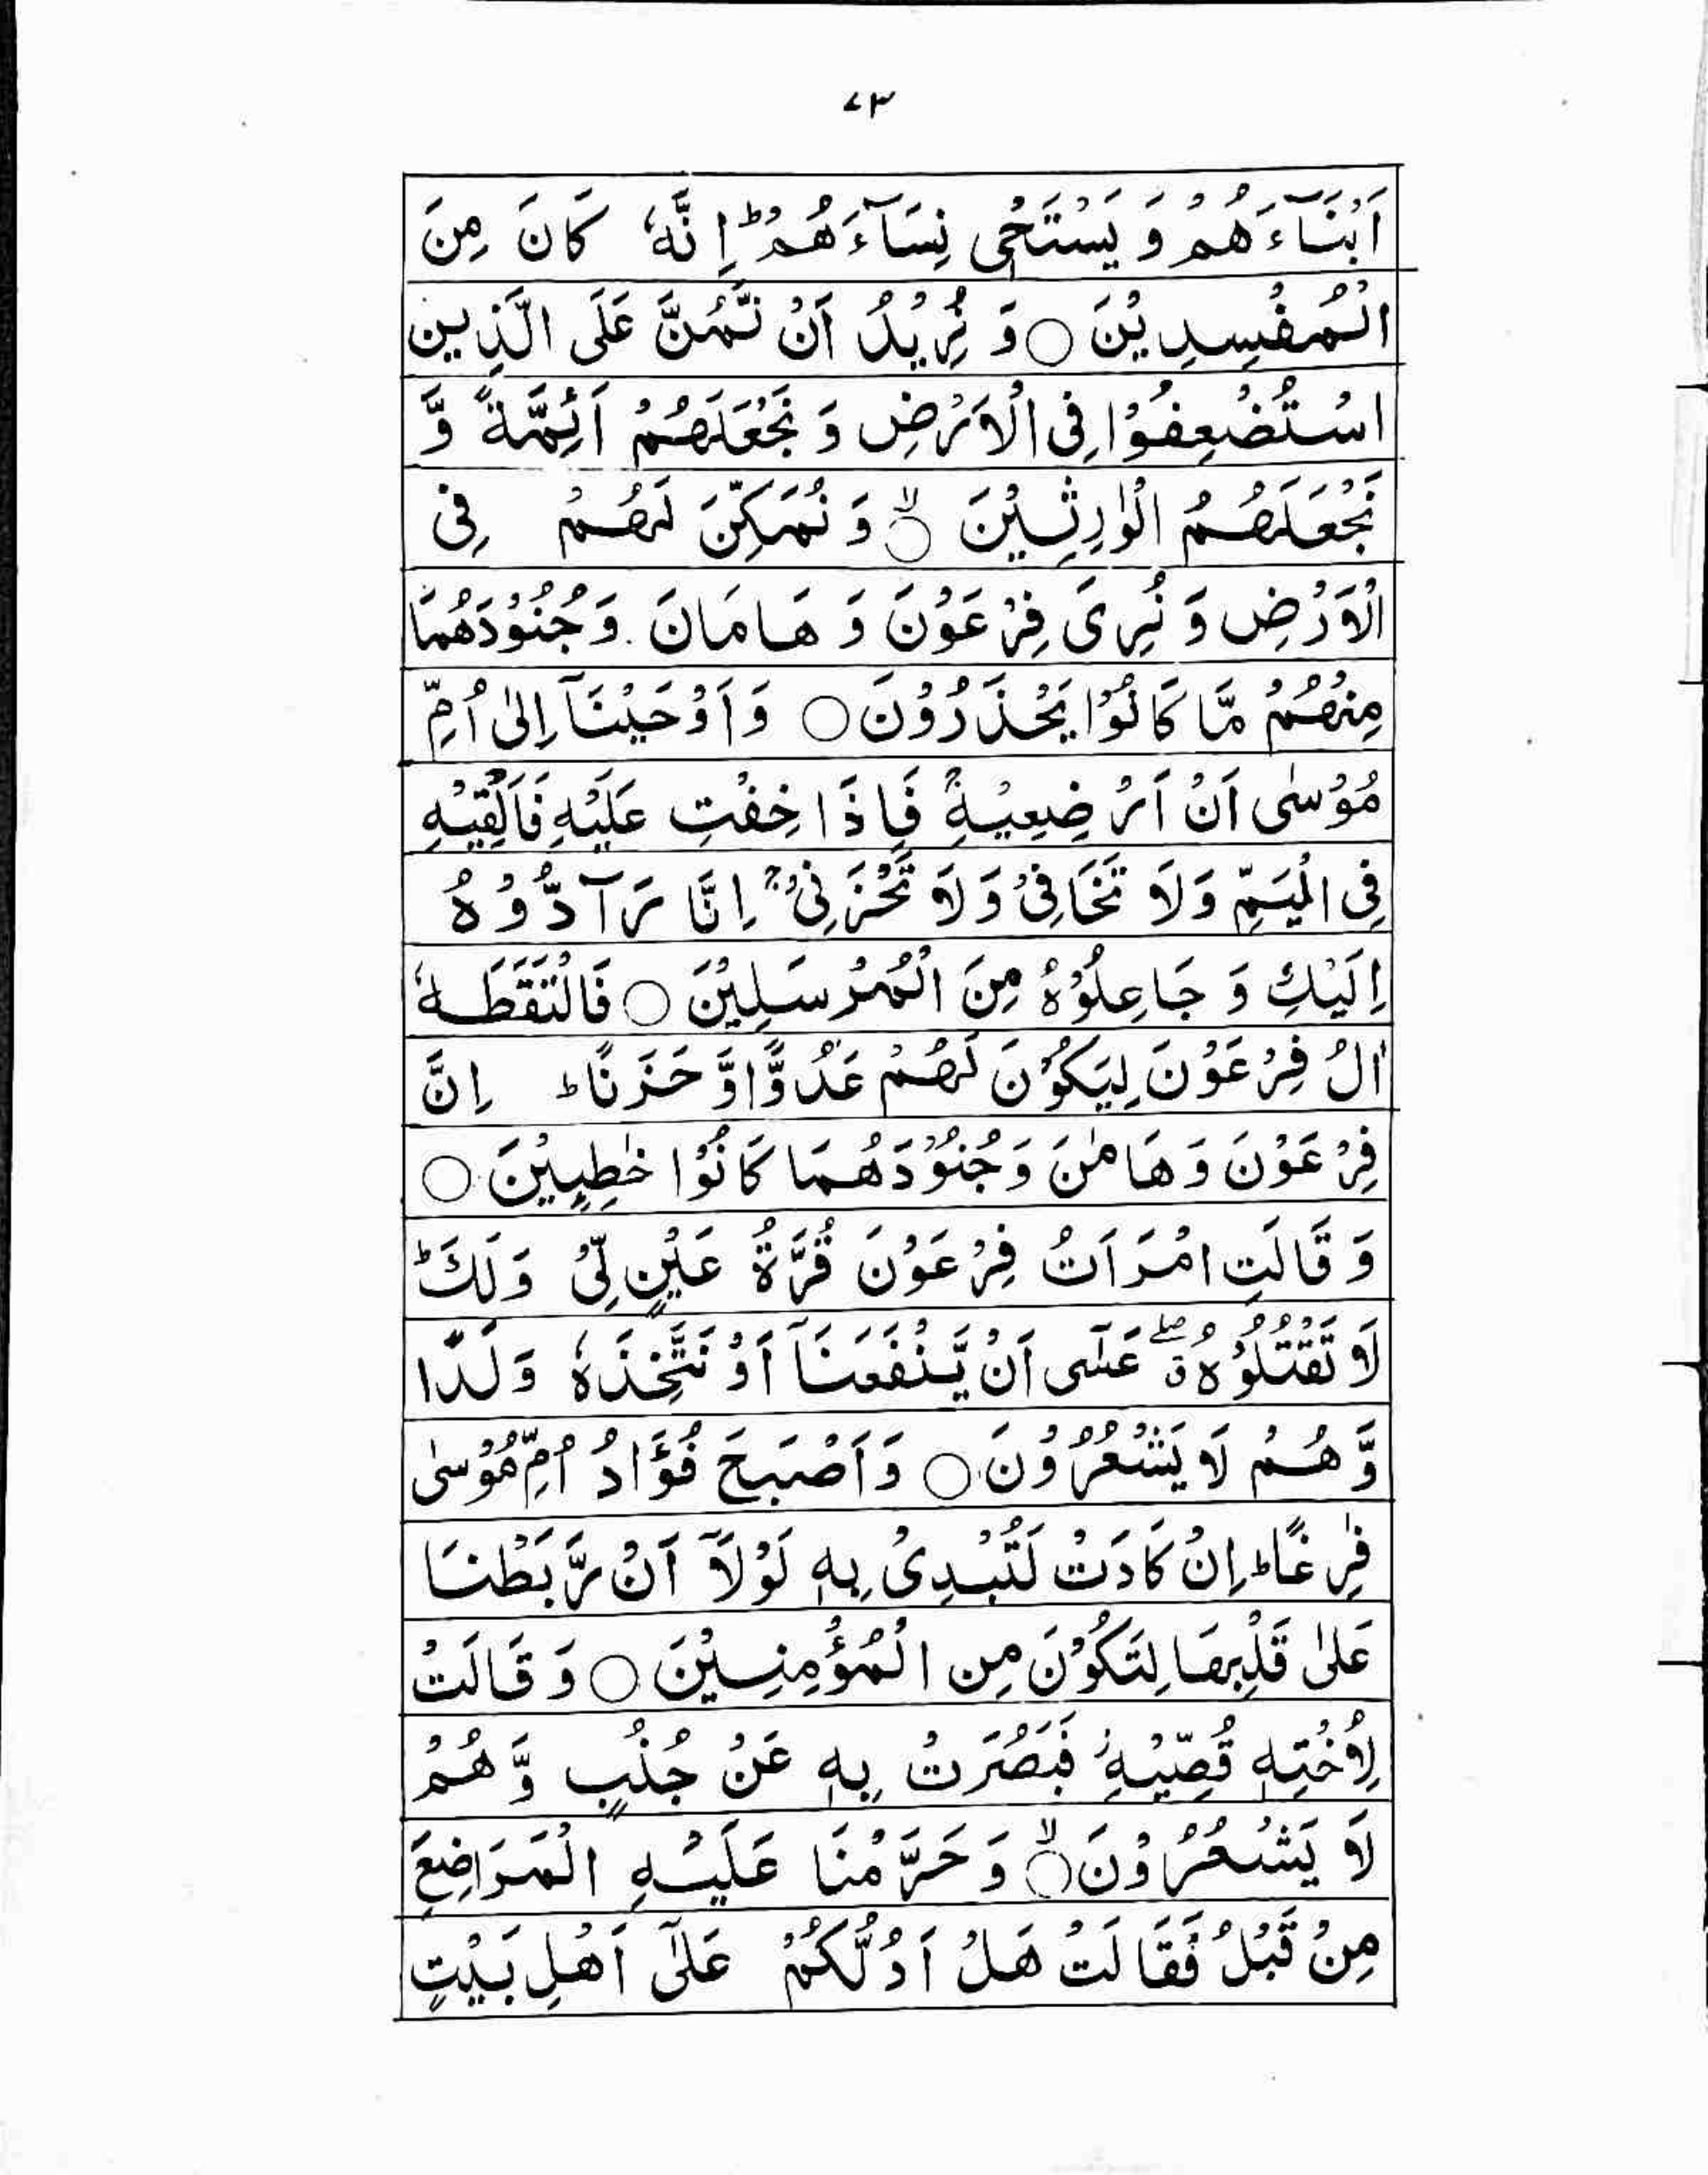 ۷۳
اَبْنَآءَهُمْ وَ يَسْتَحْیٖ نِسَآءَهُمْ ؕ اِنَّهٗ كَانَ مِنَ
الْمُفْسِدِيْنَ ○ وَ نُرِيْدُ اَنْ نَّمُنَّ عَلَى الَّذِين
اسْتُضْعِفُوْا فِى الْاَرْضِ وَ نَجْعَلَهُمْ اَئِمَّةً وَّ
نَجْعَلَهُمُ الْوٰرِثِيْنَ ○ۙ وَ نُمَكِّنَ لَهُمْ فِى
الْاَرْضِ وَ نُرِىَ فِرْعَوْنَ وَ هَامَانَ وَجُنُوْدَهُمَا
مِنْهُمْ مَّا كَانُوْا يَحْذَرُوْنَ ○ وَاَوْحَيْنَآ اِلٰى اُمِّ
مُوْسٰى اَنْ اَرْضِعِيْهِ ۚ فَاِذَا خِفْتِ عَلَيْهِ فَاَلْقِيْهِ
فِى الْيَمِّ وَلَا تَخَافِىْ وَلَا تَحْزَنِىْ ۚ اِنَّا رَآدُّوْهُ
اِلَيْكِ وَ جَاعِلُوْهُ مِنَ الْمُرْسَلِيْنَ ○ فَالْتَقَطَهٗ
اٰلُ فِرْعَوْنَ لِيَكُوْنَ لَهُمْ عَدُوًّا وَّ حَزَنًا ؕ اِنَّ
فِرْعَوْنَ وَ هَامٰنَ وَ جُنُوْدَهُمَا كَانُوْا خٰطِـِٕيْنَ ○
وَ قَالَتِ امْرَاَتُ فِرْعَوْنَ قُرَّةُ عَيْنٍ لِّىْ وَلَكَ ؕ
لَا تَقْتُلُوْهُ ۖق عَسٰٓى اَنْ يَّنْفَعَنَآ اَوْ نَتَّخِذَهٗ وَلَدًا
وَّ هُمْ لَا يَشْعُرُوْنَ ○ وَاَصْبَحَ فُؤَادُ اُمِّ مُوْسٰى
فٰرِغًا ؕ اِنْ كَادَتْ لَتُبْدِىْ بِهٖ لَوْلَآ اَنْ رَّبَطْنَا
عَلٰى قَلْبِهَا لِتَكُوْنَ مِن الْمُؤْمِنِيْنَ ○ وَ قَالَتْ
لِاُخْتِهٖ قُصِّيْهِ ۫ فَبَصُرَتْ بِهٖ عَنْ جُنُبٍ وَّ هُمْ
لَا يَشْعُرُوْنَ ○ۙ وَ حَرَّمْنَا عَلَيْهِ الْمَرَاضِعَ
مِنْ قَبْلُ فَقَالَتْ هَلْ اَدُلُّكُمْ عَلٰٓى اَهْلِ بَيْتٍ